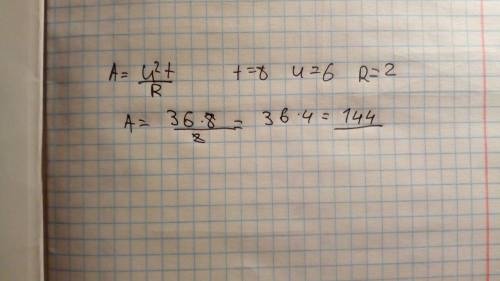 A = u²t/R t=8 u=6 R=2
A = 36·8/2 = 36·4 = 144